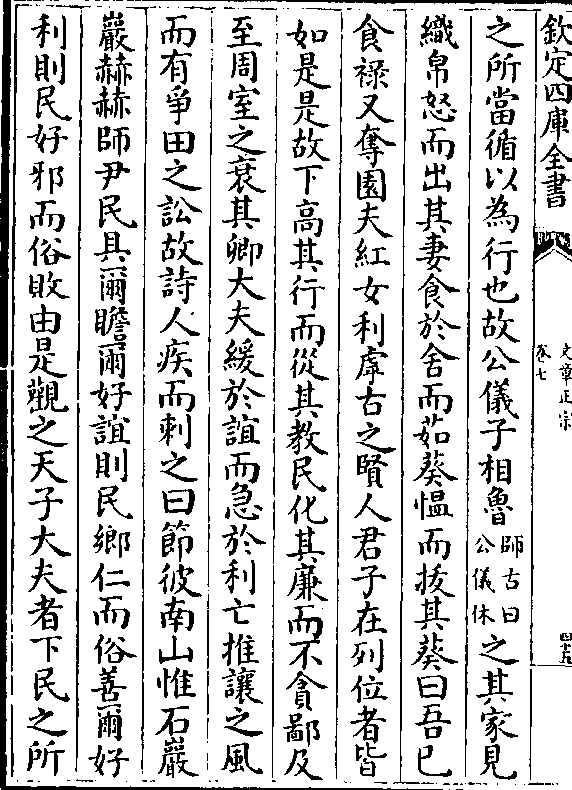 欽定四庫全書
文章正宗
卷七
四十五
之所當循以為行也故公儀子相魯師古曰公儀休之其家見
織帛怒而出其妻食於舍而茹葵愠而拔其葵曰吾已
食祿又奪園夫紅女利虖古之賢人君子在列位者皆
如是是故下高其行而從其教民化其廉而不貪鄙及
至周室之衰其卿大夫緩於誼而急於利亡推讓之風
而有爭田之訟故詩人疾而刺之曰節彼南山惟石巖
巖赫赫師尹民具爾瞻爾好誼則民鄉仁而俗善爾好
利則民好邪而俗敗由是觀之天子大夫者下民之所